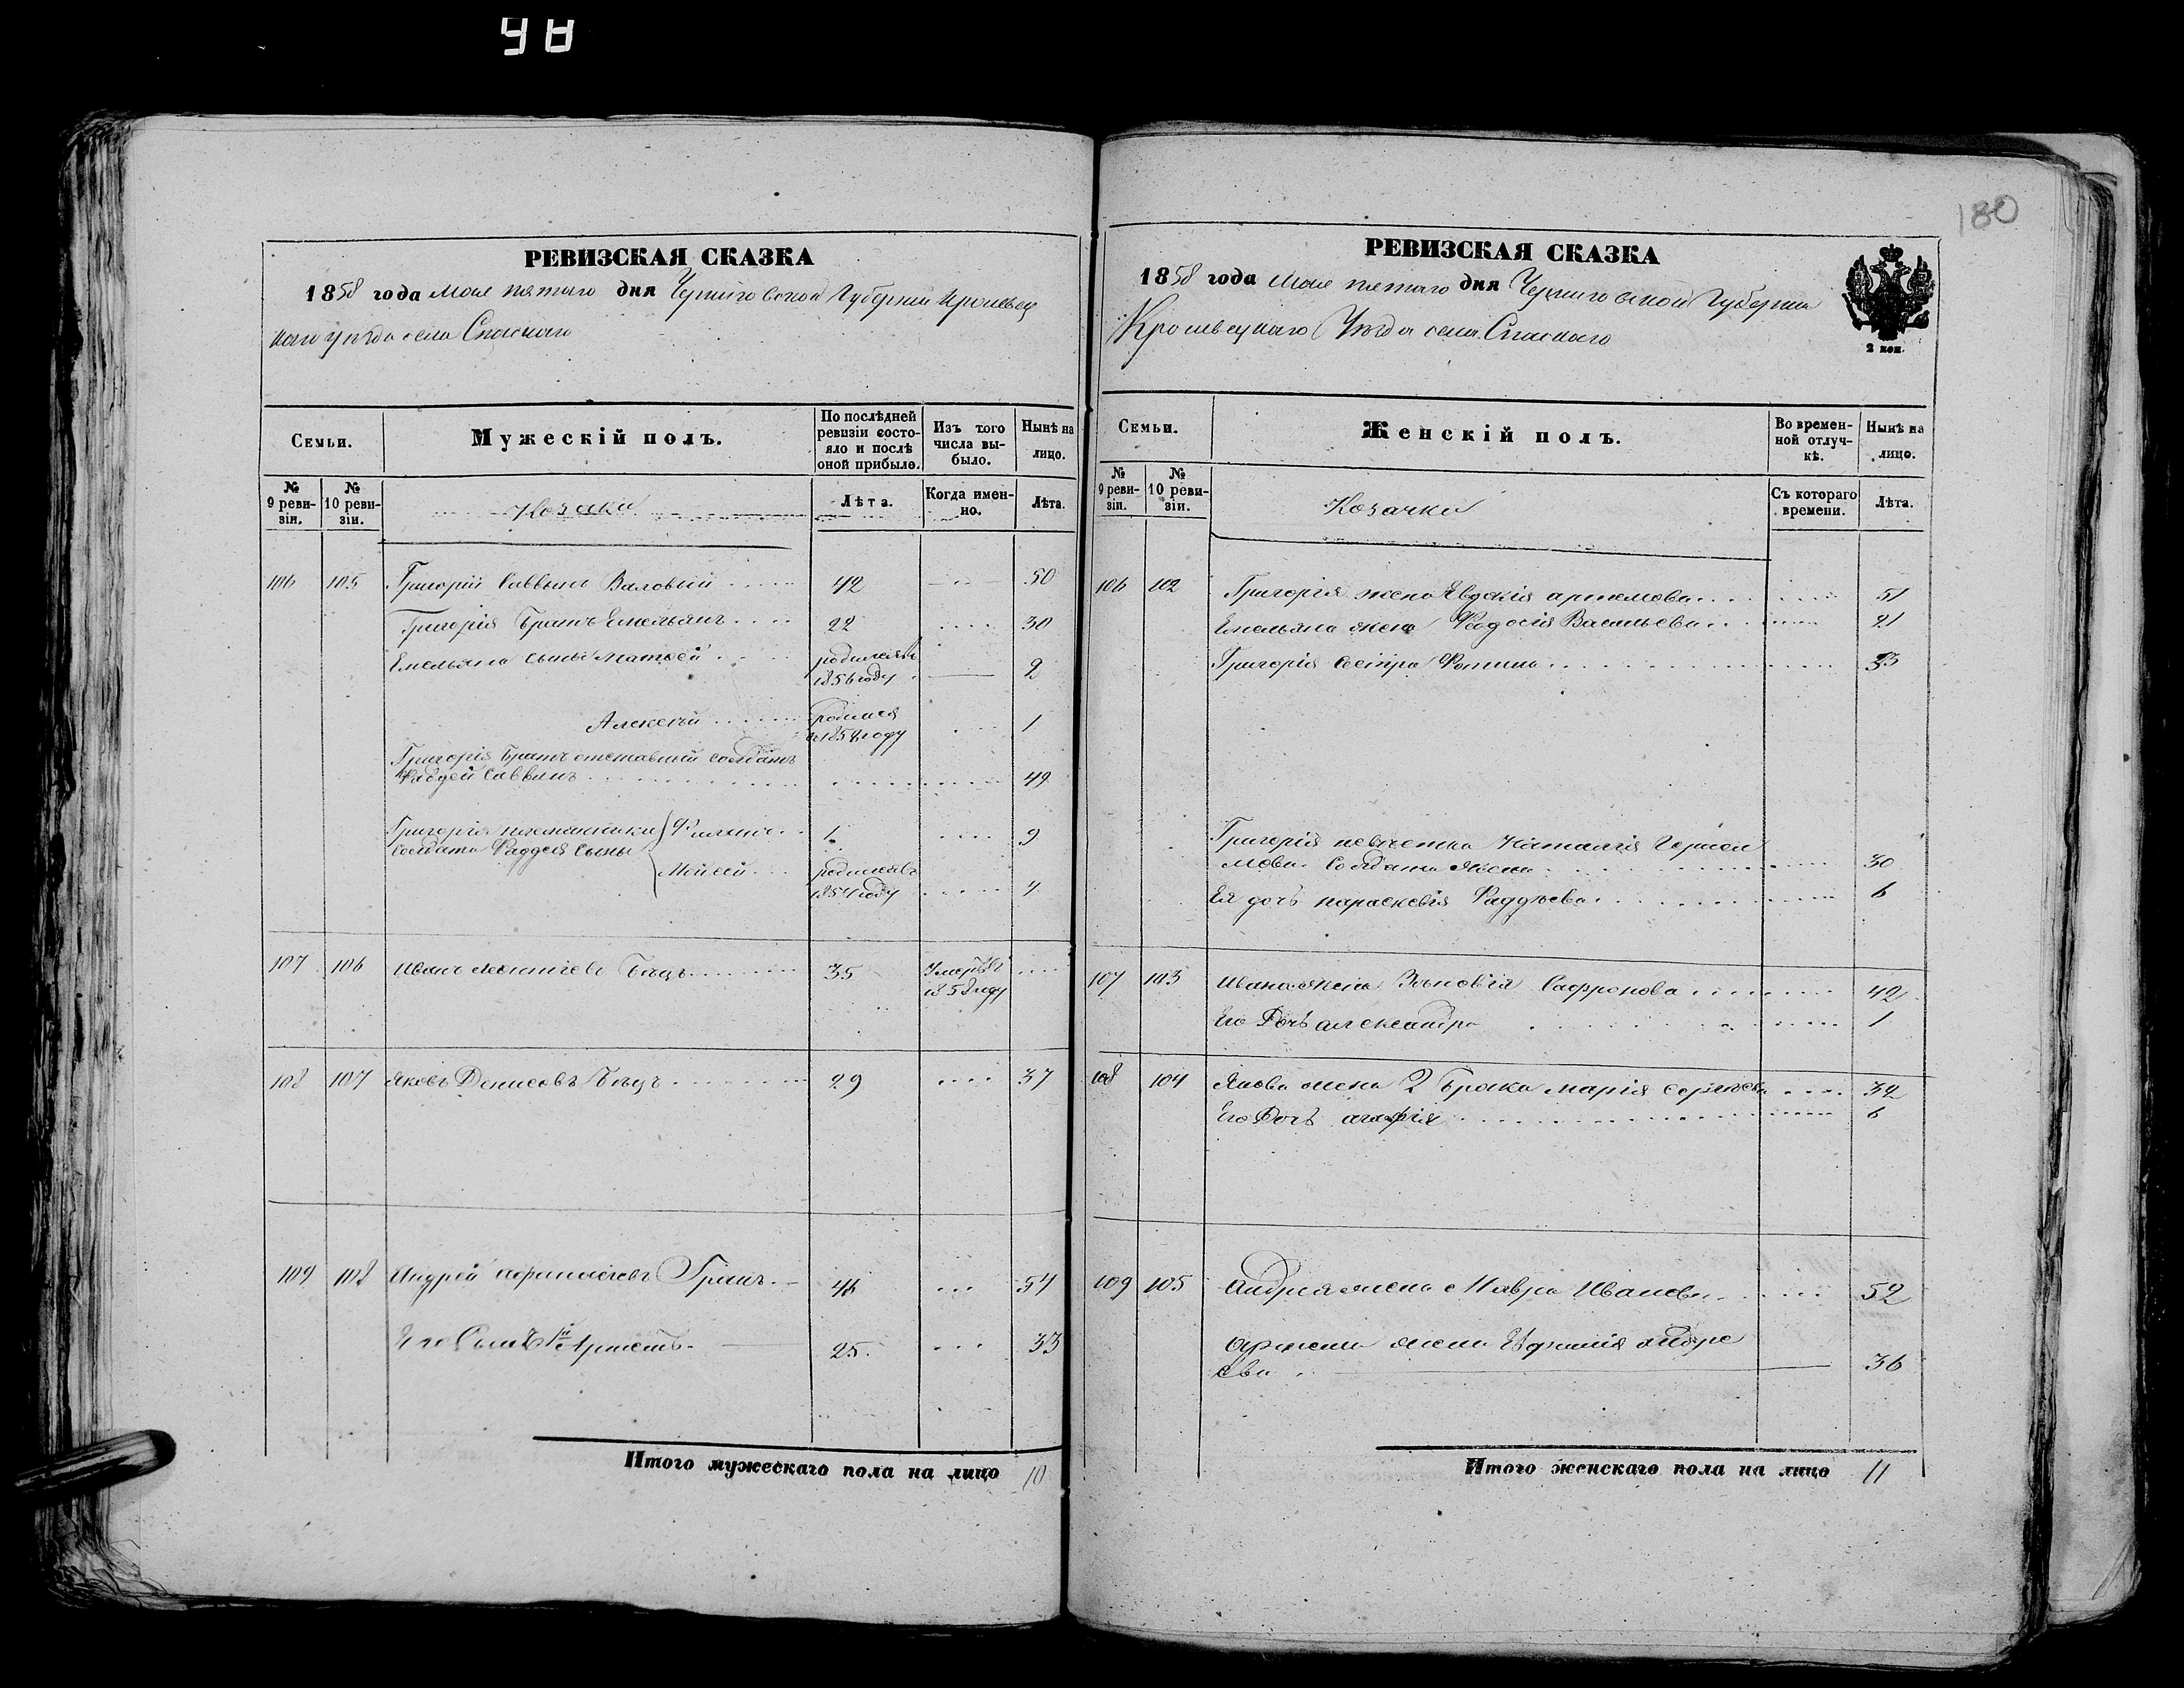 98
РЕВИЗСКАЯ СКАЗКА
1858 года Мая пятаго дня Черниговской Губерніи Кролевец
каго уѣзда села Спаскаго
Семьи.
Мужескій полъ.
По послѣдней ревизіи состояло и послѣ оной прибыло.
Изъ того числа выбыло.
Нынѣ на лицо.
№ 9 ревизіи.
№ 10 ревизіи.
Козаки
Лѣта.
Когда именно.
Лѣта.
106 105 Григорій Саввинъ Валовый 42 50
Григорія Братъ Емельянъ 22 30
Емельяна сыны Матвей родился въ 1856 году 2
Алексѣй родился въ 1858 году 1
Григорія Братъ отставный солдатъ
Фаддей Саввинъ 49
Григорія племянники
солдата Фаддея Сыны
1 9
Мойсей родился въ 1854 году 4
107 106 Иванъ Бѣцъ 35 Умеръ въ 1858 году
108 107 Яковъ Денисовъ Бѣцъ 29 37
109 108 Андрей Афанасіевъ 46 54
Его Сынъ Артемъ 25 33
Итого мужескаго пола на лицо 10
180
РЕВИЗСКАЯ СКАЗКА
1858 года Мая пятаго дня Черниговской Губерніи
Кролевецкаго Уѣзда села Спаскаго
2 коп.
Семьи.
Женскій полъ.
Во временной отлучкѣ.
Нынѣ на лицо.
№ 9 ревизіи.
№ 10 ревизіи.
Козачки
Съ котораго времени.
Лѣта.
106 102 Григорія жена Явдокія Артемова 51
Емельяна жена Феодосія Васильева 21
Григорія Сестра 33
Григорія невѣстка Наталія
Солдата Жена 30
Ея дочь Параскевія Фаддѣева 6
107 103 Ивана жена Зѣновія Сафронова 42
Его Дочь Александра 1
108 104 Якова жена 2 Брака Марія Сергѣева 32
Его Дочь Агафія 6
109 105 Андрея жена Мавра Иванова 52
Артема жена Евфимія Андре
ева 36
Итого женскаго пола на лицо 11